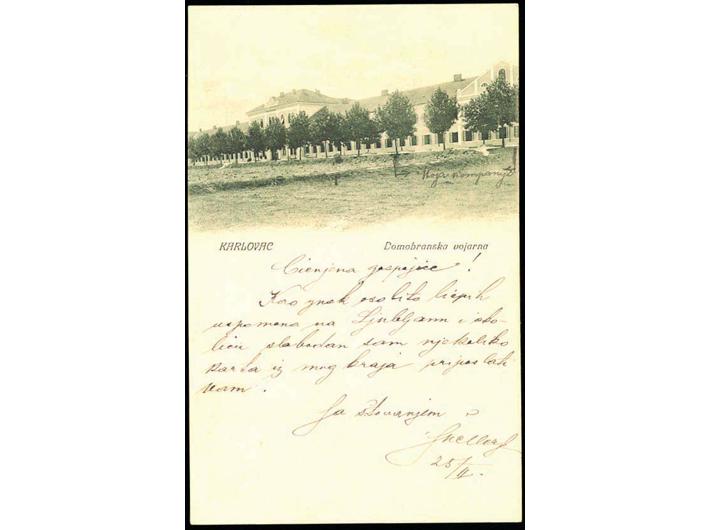 Moja kompanija
KARLOVAC Domobranska vojarna
Cienjena gospojice!
Kao znak osobito liepih
uspomena na Ljubljanu i oko-
licu slobodan sam njekoliko
karta iz mog kraja priposlati
Vam.
Sa štovanjem
25/II